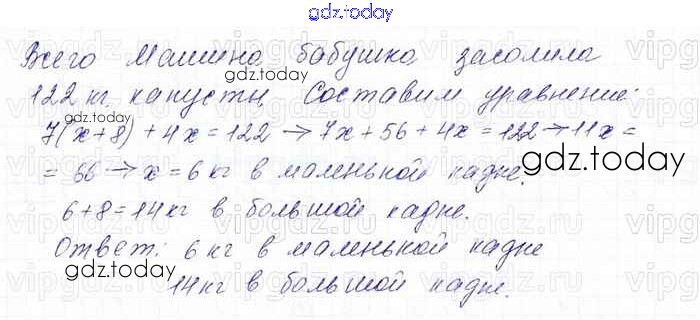 gdz.today
Всего Машина бабушка засолила
gdz.today
122 кг капусты. Составим уравнение:
gdz.today
7(x+8) + 4x = 122 → 7x + 56 + 4x = 122 → 11x =
gdz.today
= 66 → x = 6 кг в маленькой кадке.
6+8=14 кг в большой кадке.
Ответ: 6 кг в маленькой кадке
gdz.today
14 кг в большой кадке.